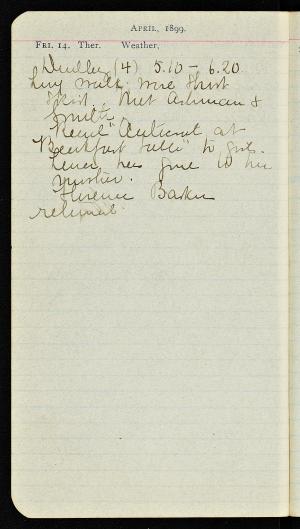 April, 1899.
Fri. 14. Ther. Weather.
Dudley (4) 5.10 – 6.20
Long walk. wore short
skirt. Met Ashman &
Smith.
Read "Autocrat at
Breakfast Table" to girls.
has gone to her
Florence Barker
returned.